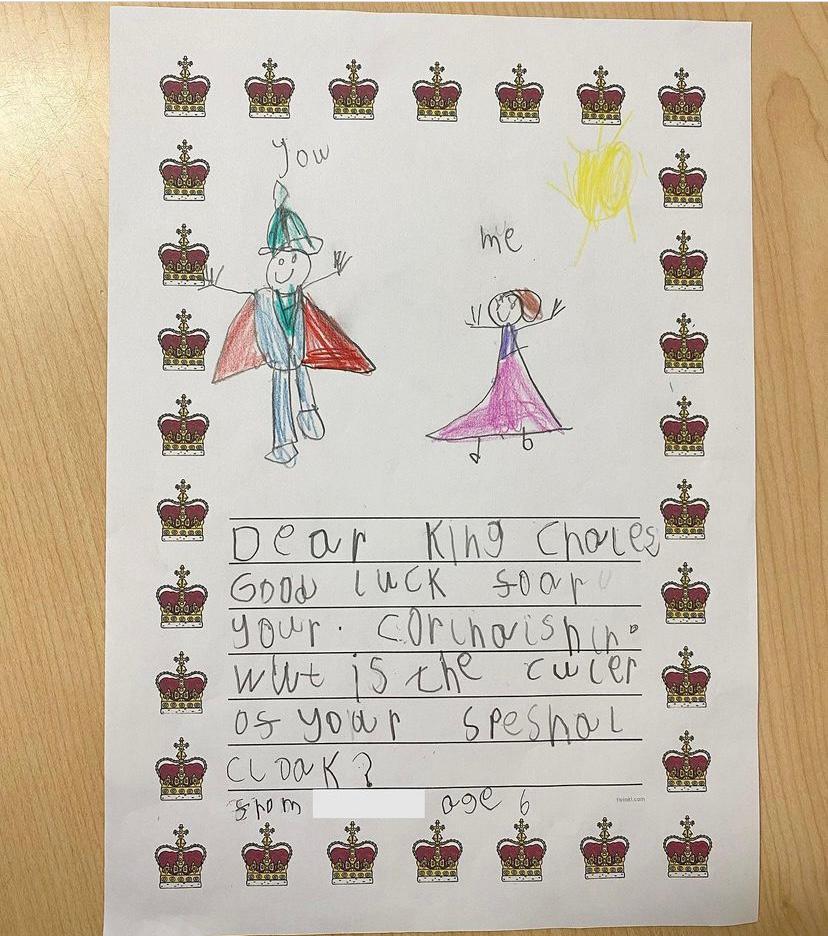 you
me
Dear King Choles
Good luck foar
your. Corinaishin.
wut is the culer
of your speshal
cloak?
from age 6
twinkl.com